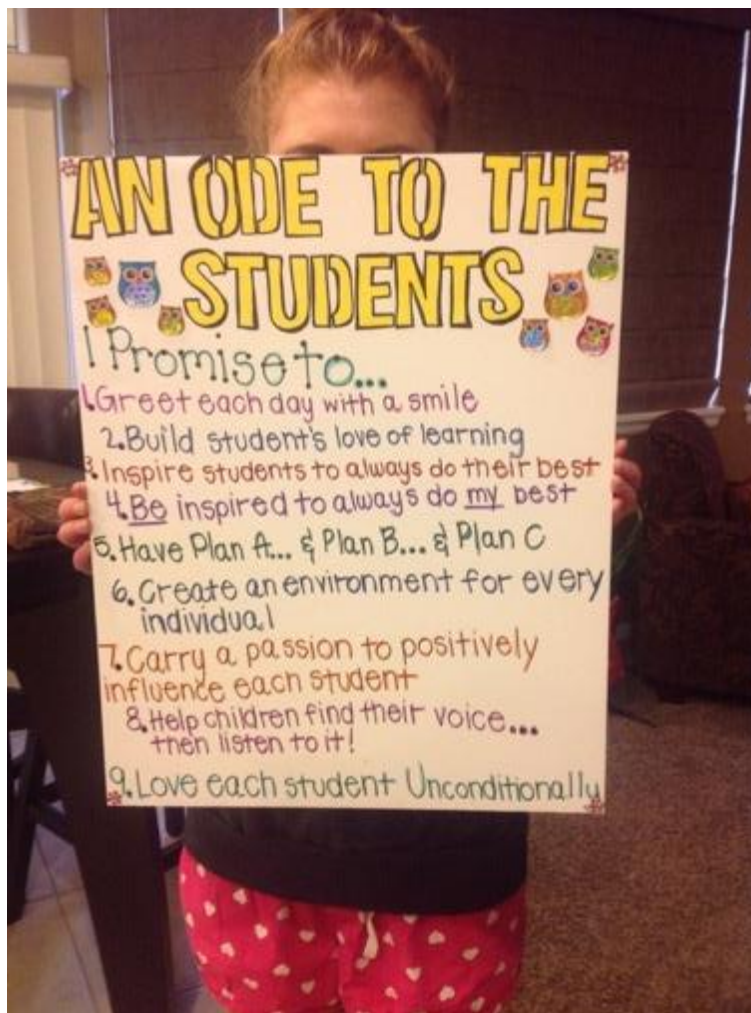 AN ODE TO THE
STUDENTS
I Promise to...
1. Greet each day with a smile
2. Build student's love of learning
3. Inspire students to always do their best
4. Be inspired to always do my best
5. Have Plan A... & Plan B... & Plan C
6. Create an environment for every
individual
7. Carry a passion to positively
influence each student
8. Help children find their voice...
then listen to it!
9. Love each student Unconditionally